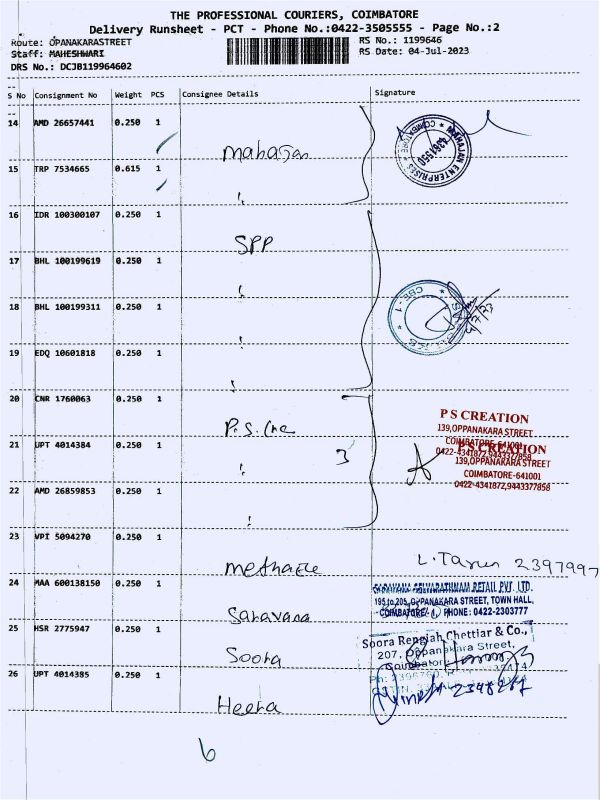 THE PROFESSIONAL COURIERS, COIMBATORE
Delivery Runsheet - PCT - Phone No.:0422-3505555 - Page No.:2
Route: OPANAKARASTREET
RS No.: 1199646
Staff: MAHESHWARI
RS Date: 04-Jul-2023
DRS No.: DCJB119964602
S No Consignment No Weight PCS Consignee Details Signature
14 AMD 26657441 0.250 1 Mahajan
MAHAJAN ENTERPRISES
4361550
* COIMBATORE *
15 TRP 7534665 0.615 1
16 IDR 100300107 0.250 1 SPP
17 BHL 100199619 0.250 1
18 BHL 100199311 0.250 1
CBE-1
19 EDQ 10601818 0.250 1
20 CNR 1760063 0.250 1 P.S. Cre
P S CREATION
139,OPPANAKARA STREET
COIMBATORE-641001
0422-4341872,9443377858
21 UPT 4014384 0.250 1 3
P S CREATION
139,OPPANAKARA STREET
COIMBATORE-641001
0422-4341872,9443377858
22 AMD 26859853 0.250 1
23 VPI 5094270 0.250 1
L. Tarun 2397997
24 MAA 600138150 0.250 1 Saravana
SARAVANA SELVARATHNAM RETAIL PVT. LTD.
195 to 205, OPPANAKARA STREET, TOWN HALL,
COIMBATORE- PHONE: 0422-2303777
25 HSR 2775947 0.250 1 Soora
Soora Rengiah Chettiar & Co.,
207, Oppanakara Street,
Coimbatore
26 UPT 4014385 0.250 1 Heera
6